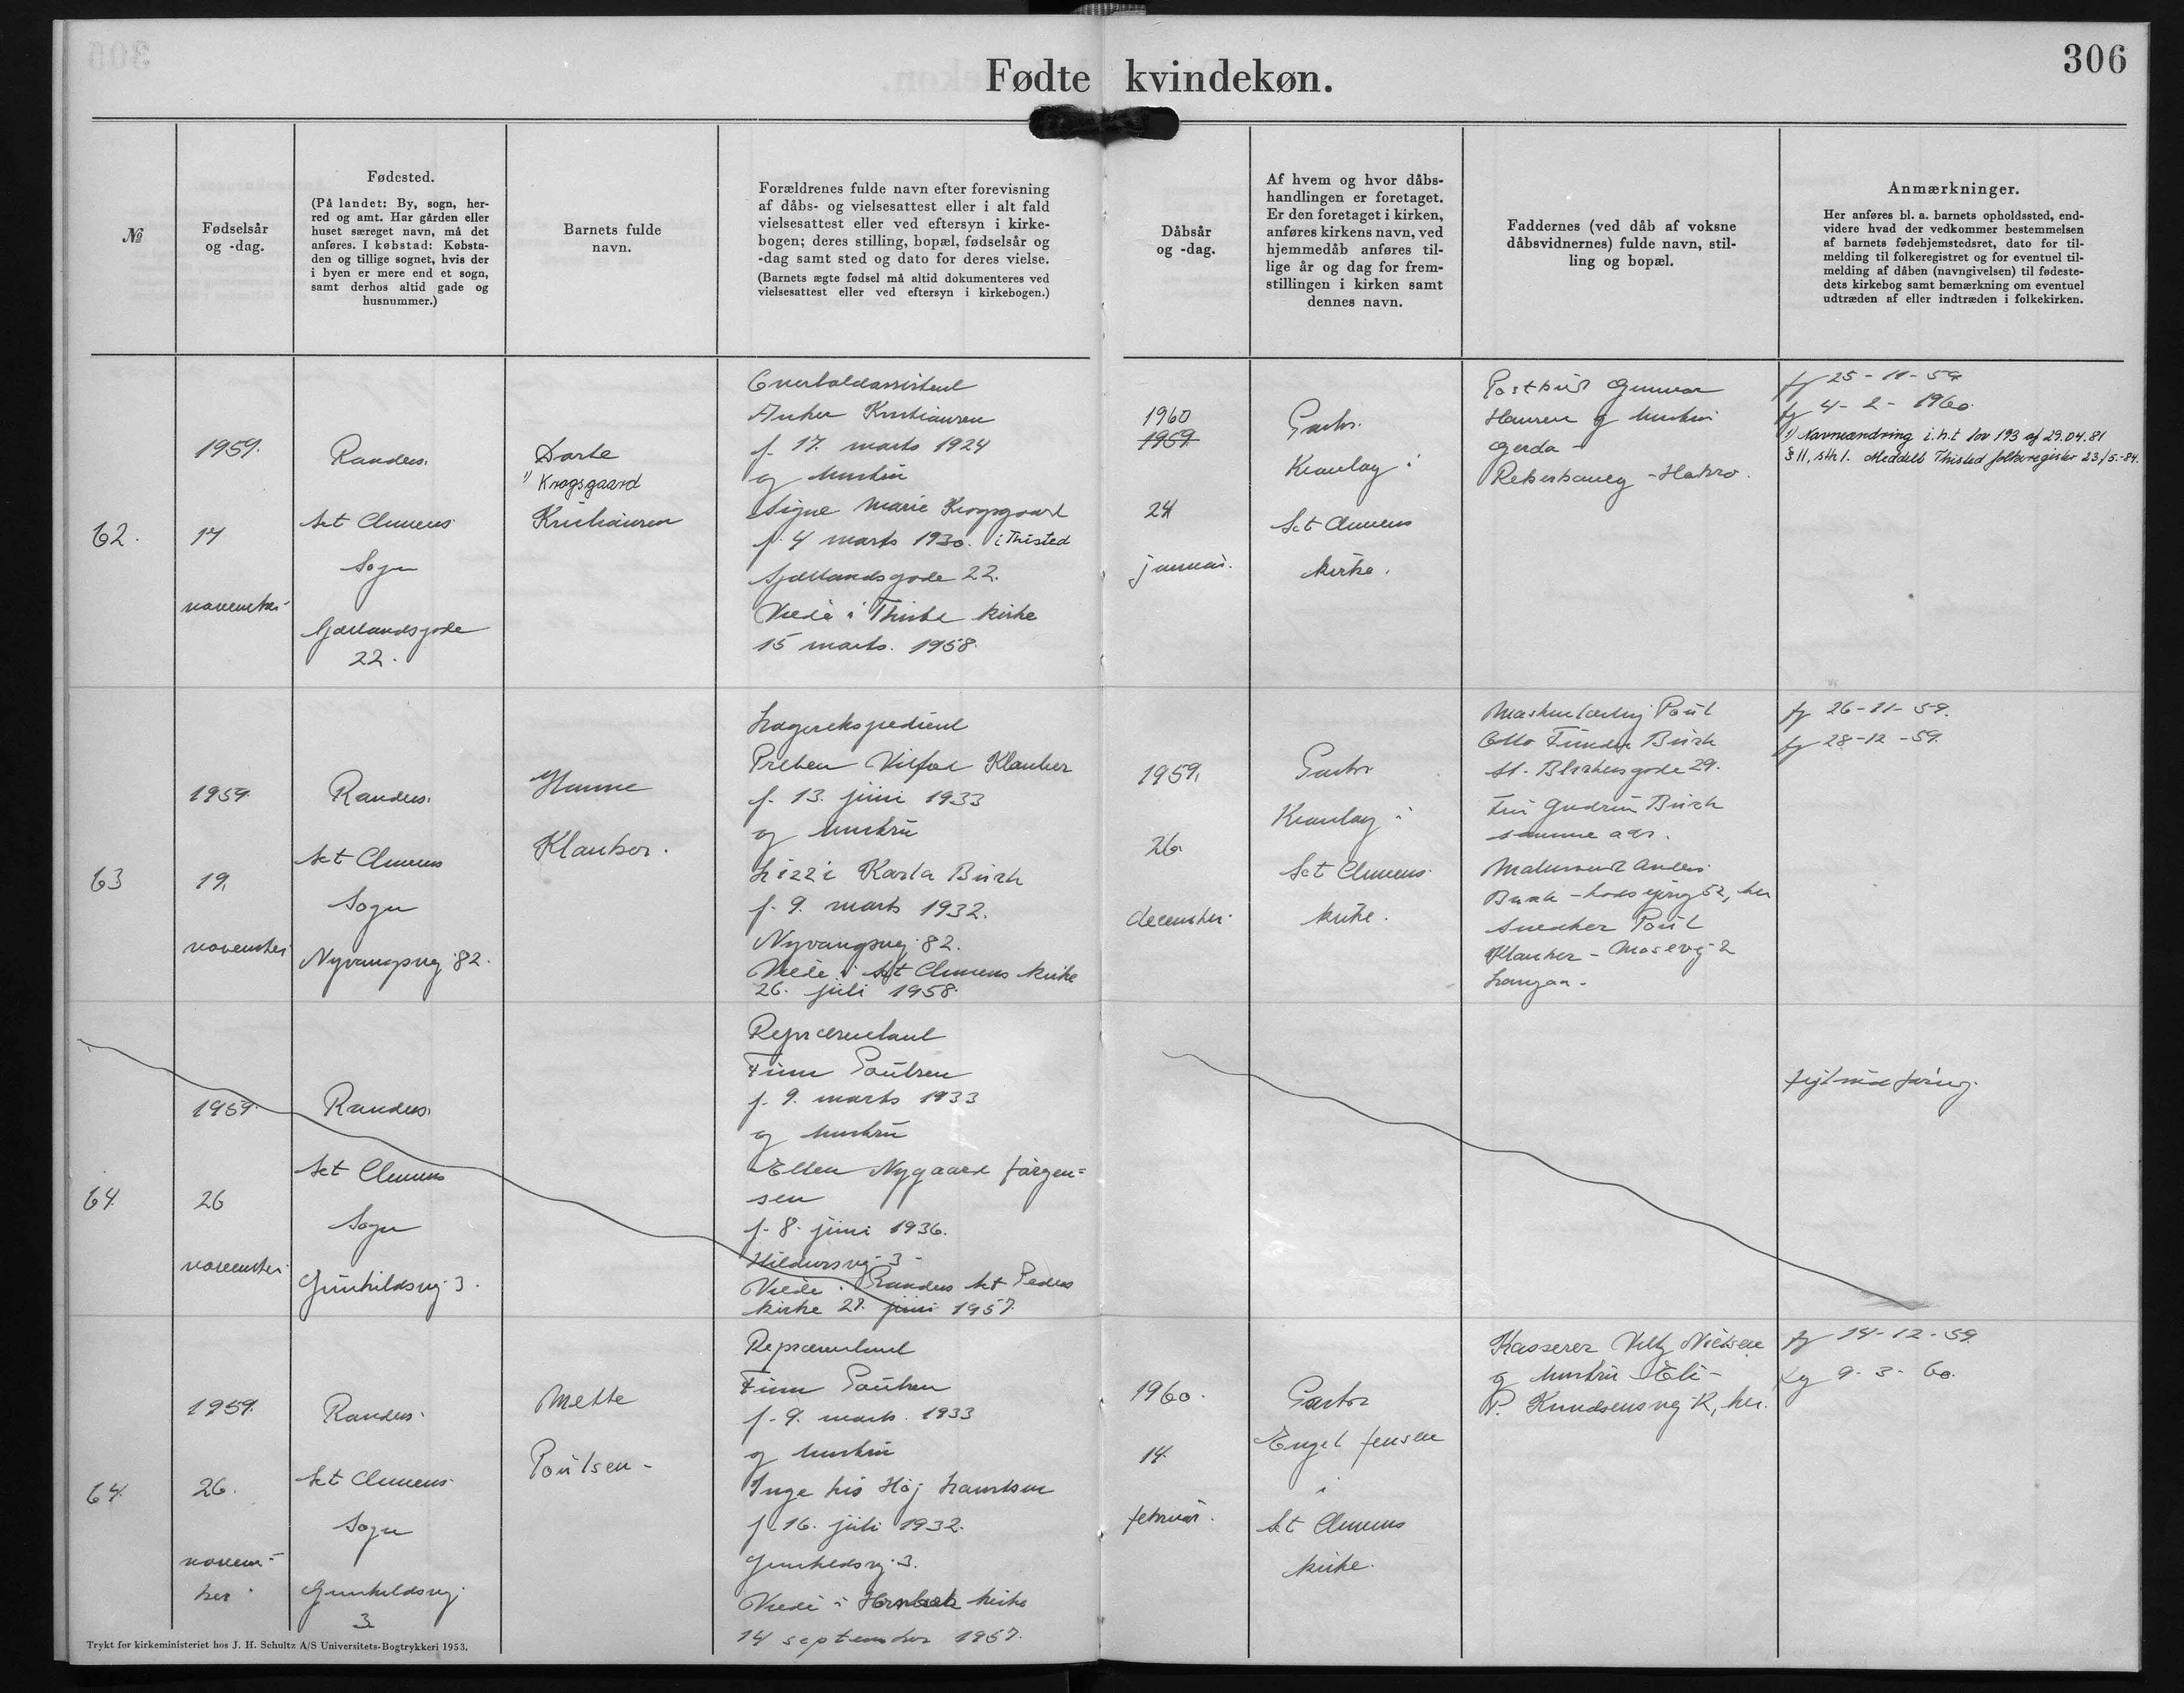 306
Fødte kvindekøn.
№
Fødselsår
og -dag.
Fødested.
(På landet: By, sogn, her-
red og amt. Har gården eller
huset særeget navn, må det
anføres. I købstad: Købsta-
den og tillige sognet, hvis der
i byen er mere end et sogn,
samt derhos altid gade og
husnummer.)
Barnets fulde
navn.
Forældrenes fulde navn efter forevisning
af dåbs- og vielsesattest eller i alt fald
vielsesattest eller ved eftersyn i kirke-
bogen; deres stilling, bopæl, fødselsår og
-dag samt sted og dato for deres vielse.
(Barnets ægte fødsel må altid dokumenteres ved
vielsesattest eller ved eftersyn i kirkebogen.)
Dåbsår
og -dag.
Af hvem og hvor dåbs-
handlingen er foretaget.
Er den foretaget i kirken,
anføres kirkens navn, ved
hjemmedåb anføres til-
lige år og dag for frem-
stillingen i kirken samt
dennes navn.
Faddernes (ved dåb af voksne
dåbsvidnernes) fulde navn, stil-
ling og bopæl.
Anmærkninger.
Her anføres bl. a. barnets opholdssted, end-
videre hvad der vedkommer bestemmelsen
af barnets fødehjemstedsret, dato for til-
melding til folkeregistret og for eventuel til-
melding af dåben (navngivelsen) til fødeste-
dets kirkebog samt bemærkning om eventuel
udtræden af eller indtræden i folkekirken.
62.
1959.
17
november
Randers.
Sct Clemens
Sogn
Sjællandsgade
22.
Dorte
1) Krogsgaard
Kristiansen
Overtoldassistent
Anker Kristiansen
f. 17. marts 1924
og hustru
Signe Marie Krogsgaard
f. 4 marts 1930. i Thisted
Sjællandsgade 22.
Viede i kirke
15 marts. 1958.
1960
1959
24
januar.
Pastor
Kranlag i
Sct Clemens
kirke.
Postbud Gunnar
Hansen og hustru
Gerda -
- Hobro.
fg 25-11-59
fg 4-2-1960.
1) Navneændring i.h.t lov 193 af 29.04.81
§ 11, stk 1. Meddelt Thisted folkeregister 23/5-84.
63
1959.
19.
november
Randers.
Sct Clemens
Sogn
Nyvangsvej 82.
Hanne
Klauber.
Lagerekspedient
Preben Klauber
f. 13. juni 1933
og hustru
Lizzi Karla Birch
f. 9. marts 1932.
Nyvangsvej 82.
Viede i Sct Clemens kirke
26. juli 1958.
1959.
26.
december.
Pastor
Kranlag i
Sct Clemens
kirke.
Poul
Otto Birch
St. Blichersgade 29.
Fru Gudrun Birch
samme adr.
Anders
52, her
Snedker Poul
Klauber - Mosevej 2
Langaa.
fg 26-11-59.
fg 28-12-59.
64.
1959.
26
november
Randers.
Sct Clemens
Sogn
Gunhildsvej 3.
Repræsentant
Finn Poulsen
f. 9. marts 1933
og hustru
Ellen Nygaard Jørgen=
sen
f. 8. juni 1936.
3
Viede i Randers Sct Peders
kirke 27. juni 1957.
fejlindføring.
64.
1959.
26.
novem-
ber
Randers.
Sct Clemens
Sogn
Gunhildsvej
3
Mette
Poulsen -
Repræsentant
Finn Poulsen
f. 9. marts. 1933
og hustru
Inge Lis Høj Lauritsen
f. 16. juli 1932.
Gunhildsvej 3.
Viede i Hornbæk kirke
14 september 1957.
1960.
14.
februar.
Pastor
Engel Jensen
i
Sct Clemens
kirke.
Kasserer Nielsen
og hustru Eli -
P. Knudsensvej 12, her.
fg 14-12-59.
fg 9-3-60.
Trykt for kirkeministeriet hos J. H. Schultz A/S Universitets-Bogtrykkeri 1953.